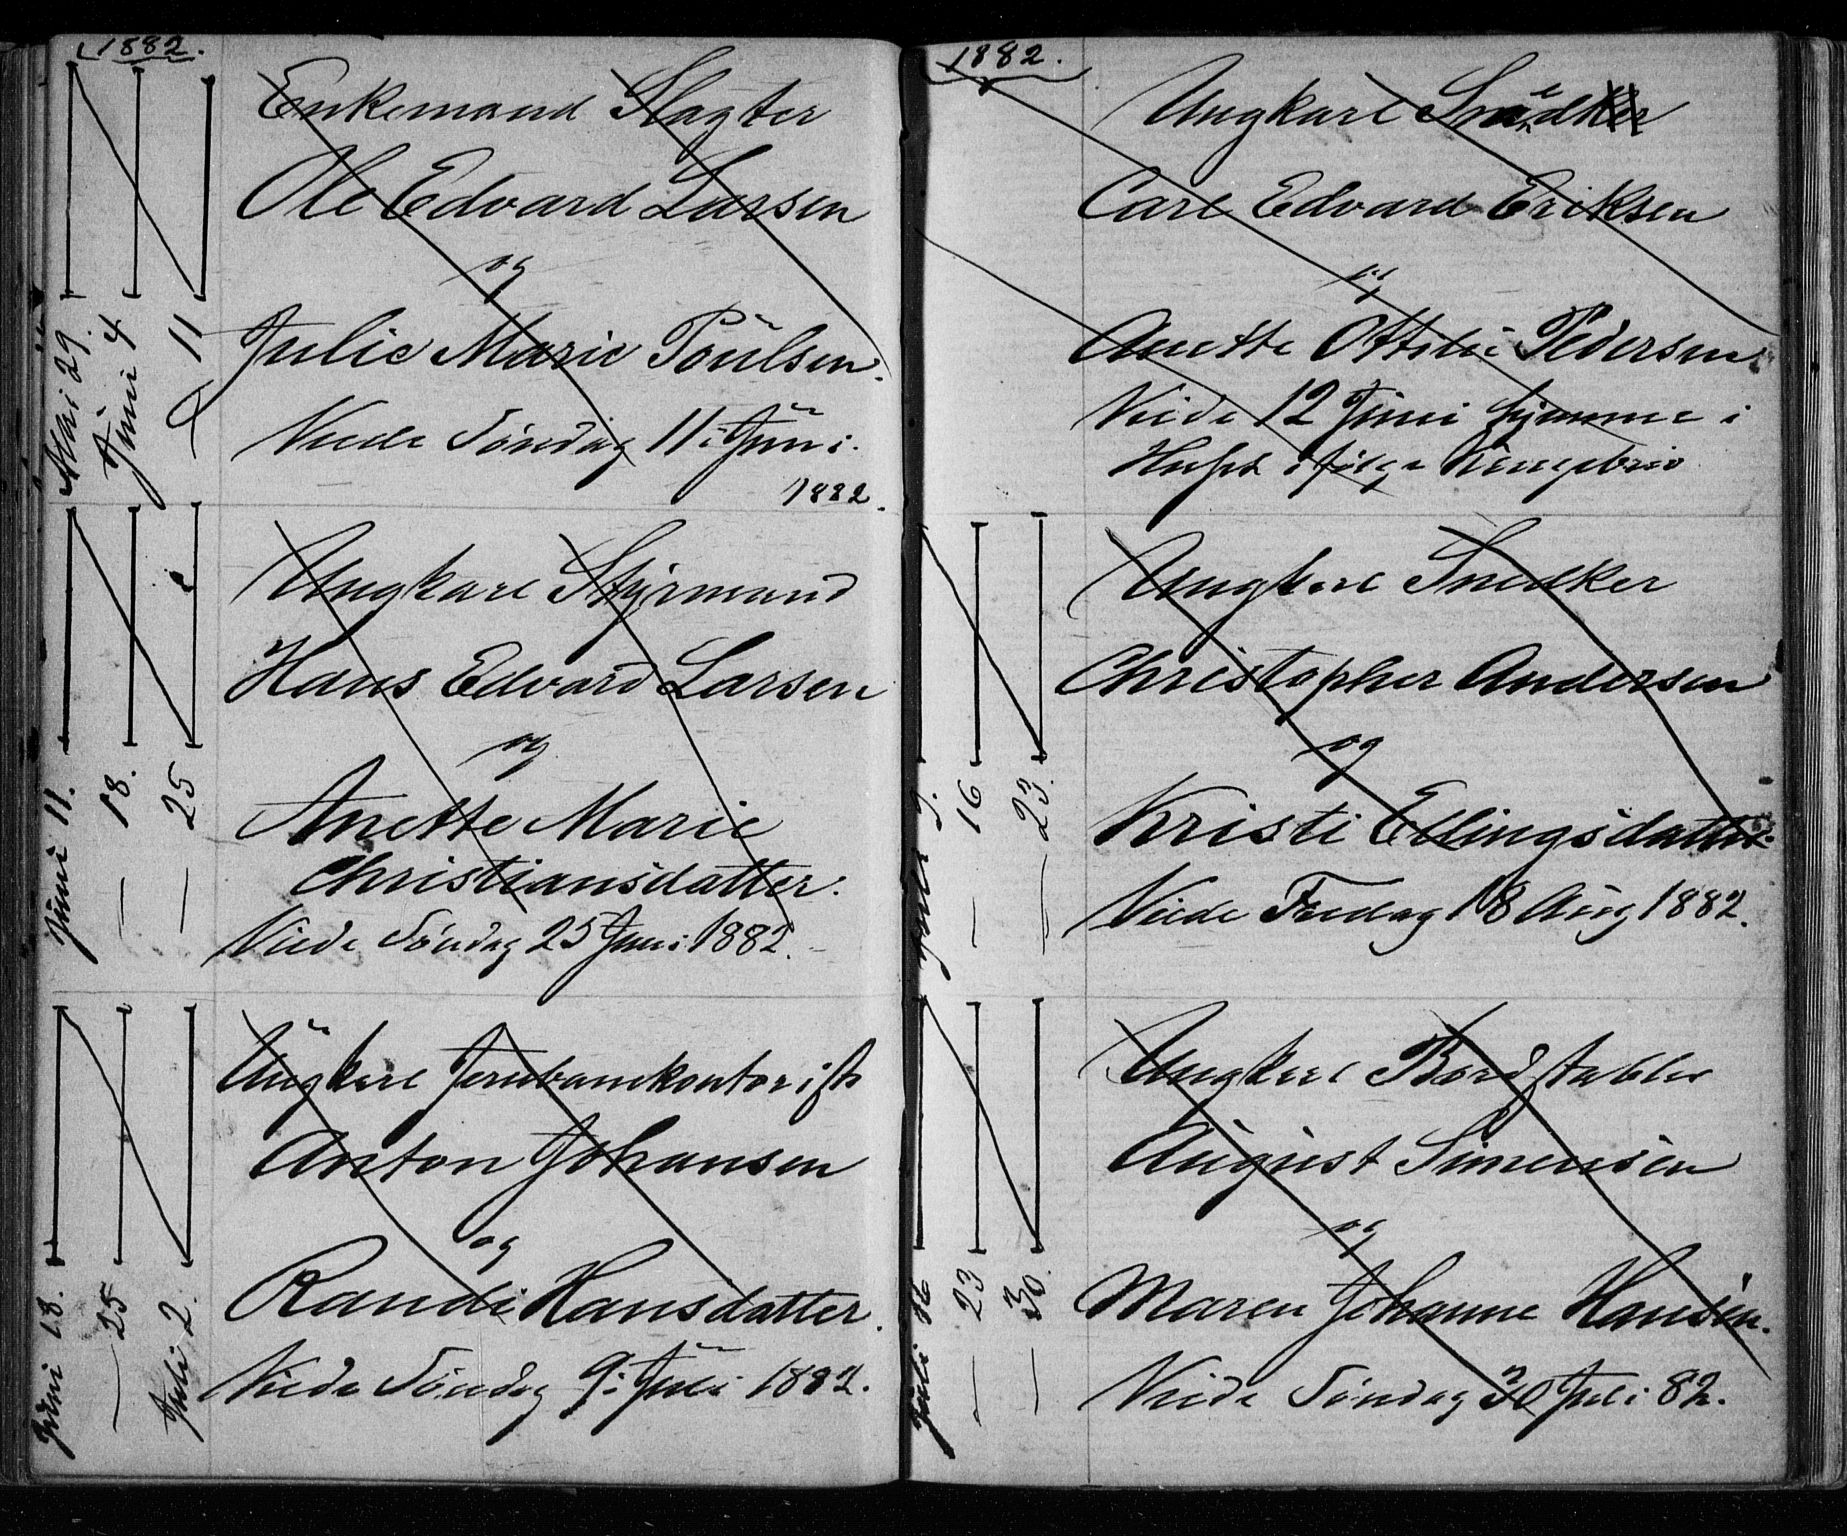 1882.
Mai 29.
Juni 4
11
Enkemand Slagter
Ole Edvard Larsen
og
Julie Marie Poulsen.
Viede Søndag 11 i Juni.
1882.
Juni 11.
— 18.
— 25
Ungkarl Styrmand
Hans Edvard Larsen
og
Anette Marie
Christiansdatter.
Viede Søndag 25 Juni 1882.
Juni 18.
— 25
Juli 2.
Ungkarl Jernbanekontorist
Anton Johansen
og
Randi Hansdatter.
Viede Søndag 9 i Juli 1882.
1882.
Ungkarl
Carl Edvard Eriksen
og
Anette Ottilie Pedersen
Viede 12 Juni hjemme i
Huset ifølge Kongebrev
Juli 9.
— 16
— 23.
Ungkarl Snedker
Christopher Andersen
og
Kristi Ellingsdatter.
Viede Fredag 18 Aug 1882.
Juli 16
— 23
— 30.
Ungkarl Bordstabler
August Simensen
og
Maren Johanne Hansen.
Viede Søndag 30 Juli 82.